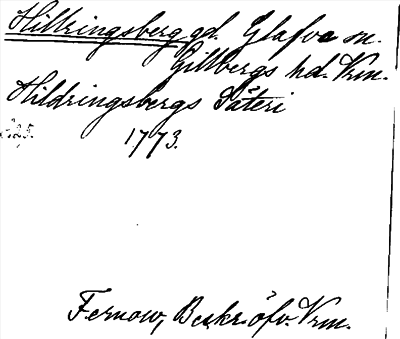 Hillringsberg gd. Glafva sn.
Gillbergs hd. Vrm.
Hildringsbergs Säteri
1773.
Fernow, Beskr. öfv. Vrm.